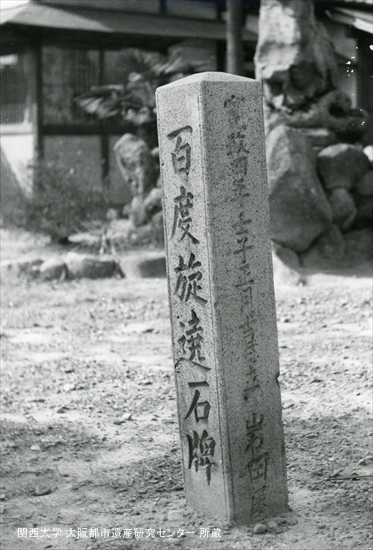 百度旋遶石牌
寛政四年壬子正月吉
岩
関西大学 大阪都市遺産研究センター 所蔵